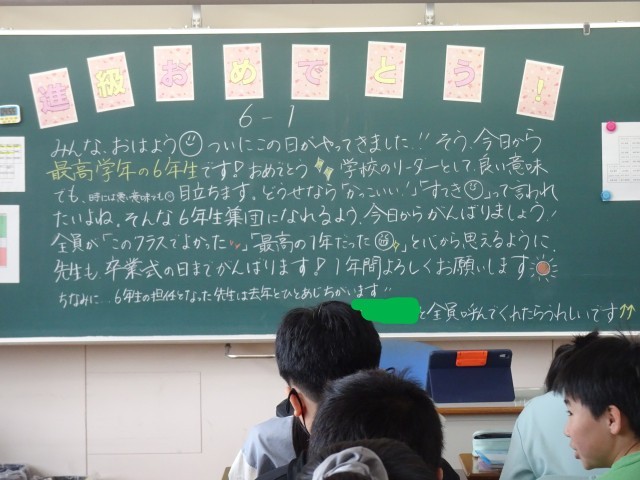 進級おめでとう!
6-1
みんな、おはよう ついにこの日がやってきました!! そう、今日から
最高学年の6年生です! おめでとう 学校のリーダーとして、良い意味
でも、時には悪い意味でも 目立ちます。どうせなら「かっこいい!」「すてき」って言われ
たいよね。そんな6年生集団になれるよう、今日からがんばりましょう!
全員が「このクラスでよかった」「最高の1年だった」と心から思えるように、
先生も、卒業式の日までがんばります! 1年間よろしくお願いします
ちなみに… 6年生の担任となった先生は去年とひとあじちがいます!!
と全員呼んでくれたらうれしいです↑↑